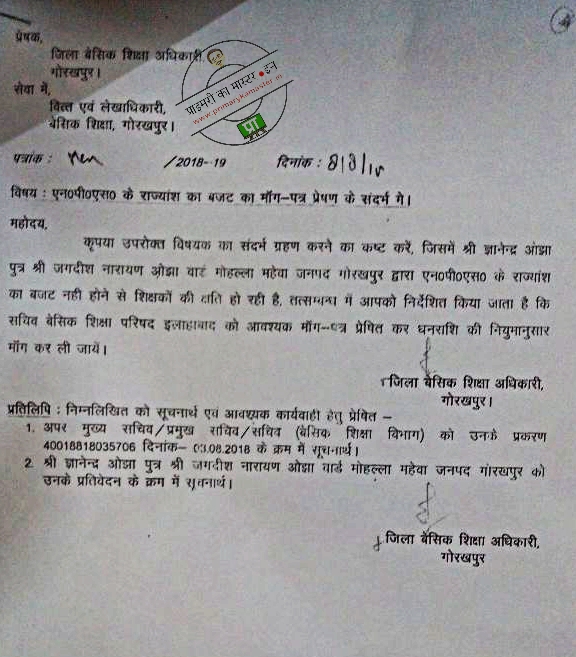 प्रेषक,
जिला बेसिक शिक्षा अधिकारी,
गोरखपुर।
सेवा में,
वित्त एवं लेखाधिकारी,
बेसिक शिक्षा, गोरखपुर।
प्राइमरी का मास्टर●इन
www.primarykamaster.in
प्रा
पत्रांक : /2018-19 दिनांक : 8/8/18
विषय : एन0पी0एस0 के राज्यांश का बजट का माँग-पत्र प्रेषण के संदर्भ में।
महोदय,
कृपया उपरोक्त विषयक का संदर्भ ग्रहण करने का कष्ट करें, जिसमें श्री ज्ञानेन्द्र ओझा
पुत्र श्री जगदीश नारायण ओझा वार्ड मोहल्ला महेवा जनपद गोरखपुर द्वारा एन0पी0एस0 के राज्यांश
का बजट नही होने से शिक्षकों की क्षति हो रही है, तत्सम्बन्ध में आपको निर्देशित किया जाता है कि
सचिव बेसिक शिक्षा परिषद इलाहाबाद को आवश्यक माँग-पत्र प्रेषित कर धनराशि की नियुमानुसार
माँग कर ली जायें।
जिला बेसिक शिक्षा अधिकारी,
गोरखपुर।
प्रतिलिपि : निम्नलिखित को सूचनार्थ एवं आवश्यक कार्यवाही हेतु प्रेषित –
1. अपर मुख्य सचिव/प्रमुख सचिव/सचिव (बेसिक शिक्षा विभाग) को उनके प्रकरण
40018818035706 दिनांक- 03.08.2018 के क्रम में सूचनार्थ।
2. श्री ज्ञानेन्द्र ओझा पुत्र श्री जगदीश नारायण ओझा वार्ड मोहल्ला महेवा जनपद गोरखपुर को
उनके प्रतिवेदन के क्रम में सूचनार्थ।
जिला बेसिक शिक्षा अधिकारी,
गोरखपुर